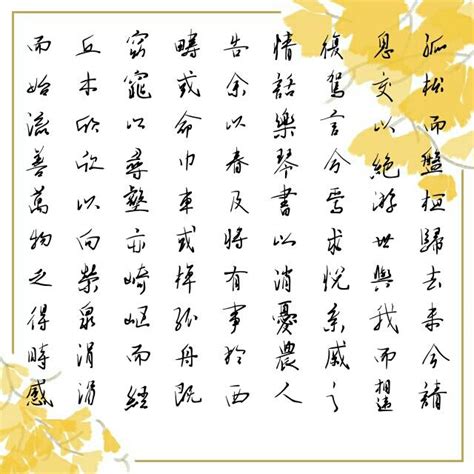 孤松而盤桓歸去來兮請
息交以絕游世與我而相違
復駕言兮焉求悅親戚之
情話樂琴書以消憂農人
告余以春及將有事於西
疇或命巾車或棹孤舟既
窈窕以尋壑亦崎嶇而經
丘木欣欣以向榮泉涓涓
而始流善萬物之得時感